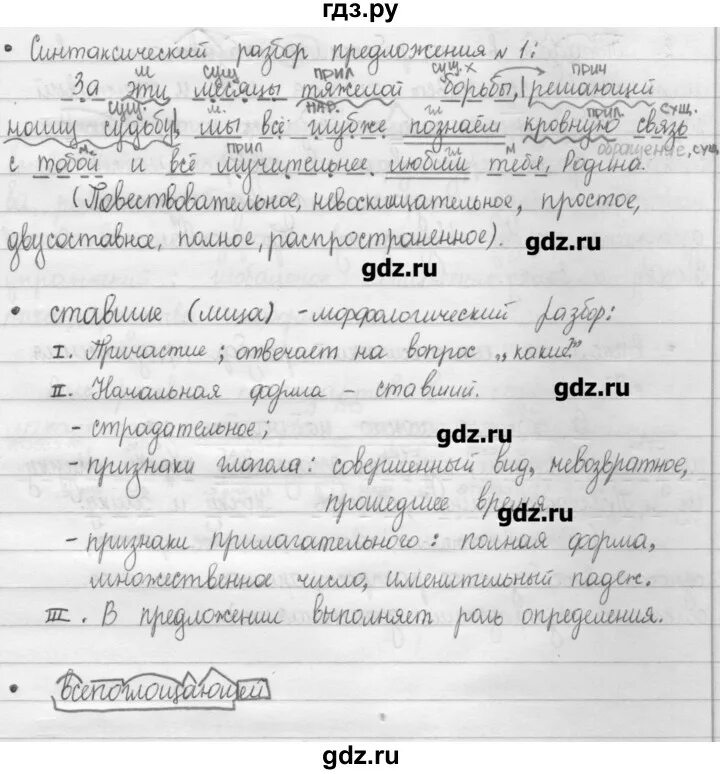 гдз.ру
• Синтаксический разбор предложения №1:
м сущ прил сущ. х прич
За эти месяцы тяжелой борьбы, решающей
сущ. м. нар. гл прил. сущ.
нашу судьбу, мы всё глубже познаём кровную связь
мс прил гл м обращение, сущ
с тобой и всё мучительнее любим тебя, Родина.
(Повествовательное, невосклицательное, простое,
двусоставное, полное, распространенное).
gdz.ru
gdz.ru
• ставшие (лица) - морфологический разбор:
I. Причастие; отвечает на вопрос „какие?"
II. Начальная форма - ставший.
gdz.ru
- страдательное;
gdz.ru
- признаки глагола: совершенный вид, невозвратное,
прошедшее время
gdz.ru
- признаки прилагательного: полная форма,
множественное число, именительный падеж.
III. В предложении выполняет роль определения.
• всепоглощающей
gdz.ru